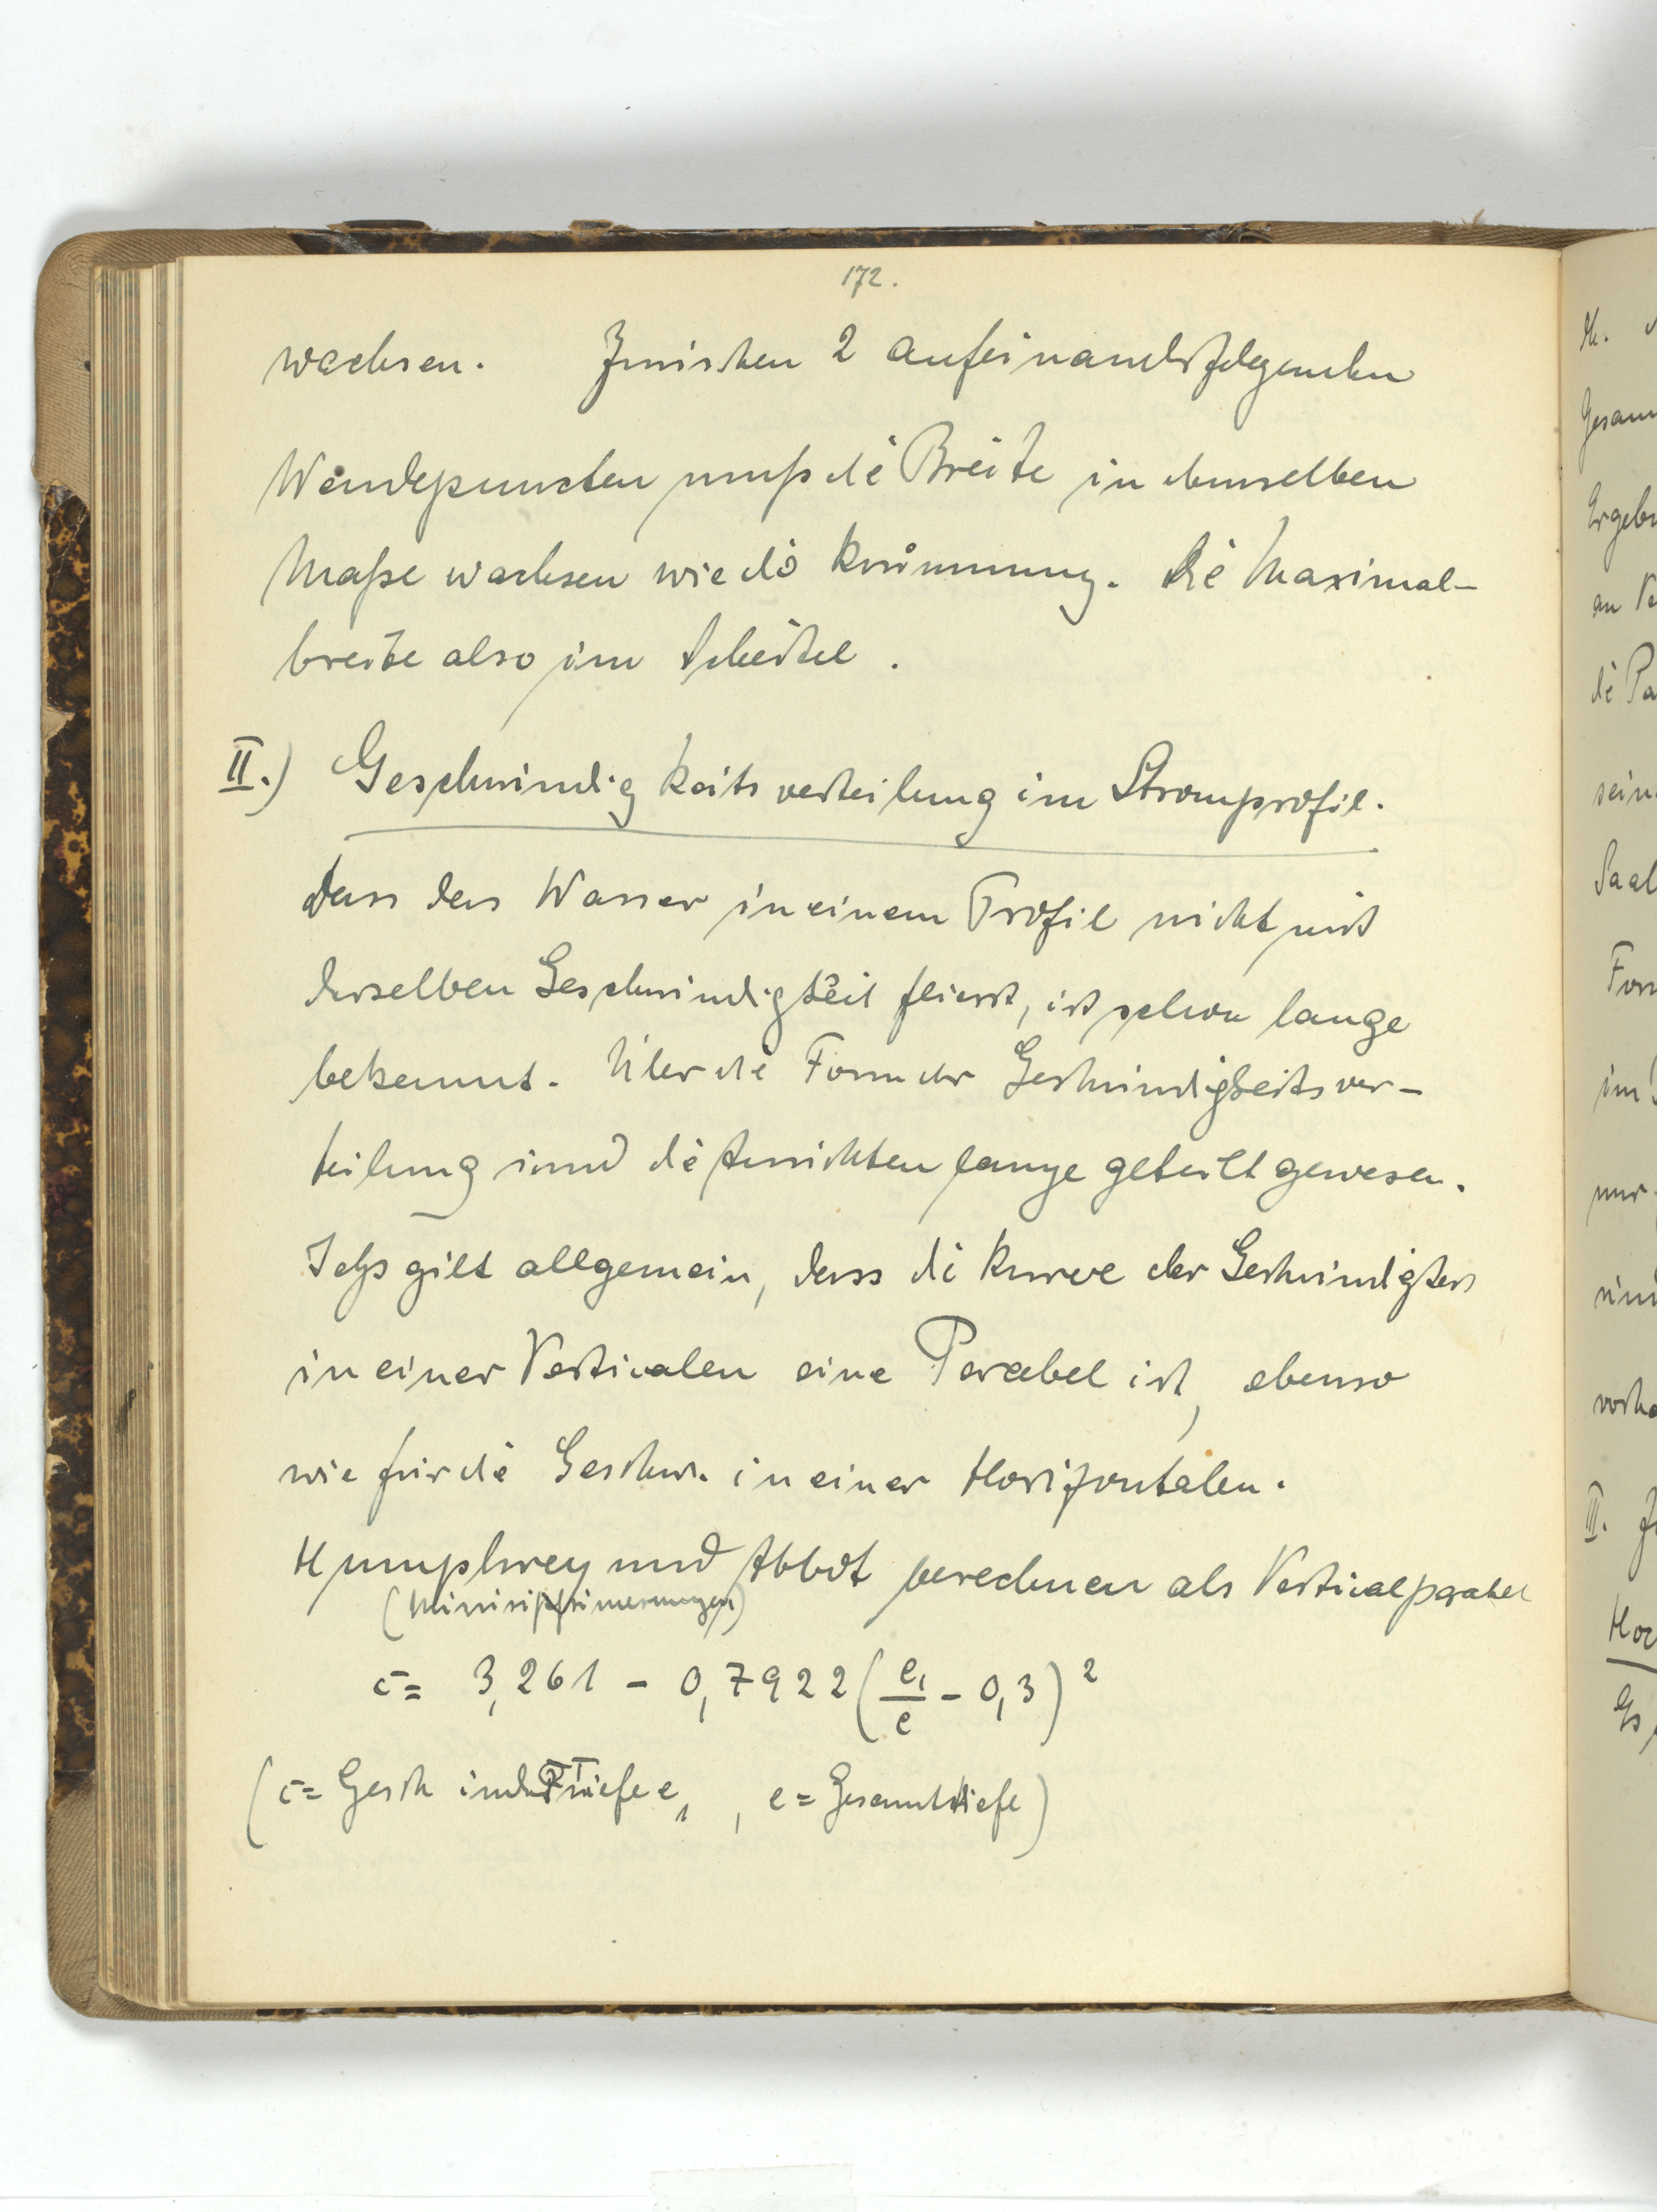 172.
wachsen. Zwischen 2 aufeinanderfolgenden
Wendepuncten muß die Breite in demselben
Maße wachsen wie die Krümmung. Die Maximal-
breite also im Scheitel.
II.) Geschwindigkeitsverteilung im Stromprofil.
Dass das Wasser in einem Profil nicht mit
derselben Geschwindigkeit fliesst, ist schon lange
bekannt. Über die Form der Geschwindigkeitsver-
teilung sind die Ansichten lange geteilt gewesen.
Jetzt gilt allgemein, dass die Kurve der Geschwindigkeit
in einer Verticalen eine Parabel ist, ebenso
wie für die Geschw. in einer Horizontalen.
Humphrey und Abbot berechnen als Verticalparabel
(Missisippimessungen)
c = 3,261 - 0,7922 (e₁/e - 0,3)²
(c = Gesch in der Tiefe e₁, e = Gesamttiefe)
M.
Gesam
Ergebn
an Ve
die Pa
sein
Saal
Form
im
nur
und
vorha
III. Z
Hoc
Es